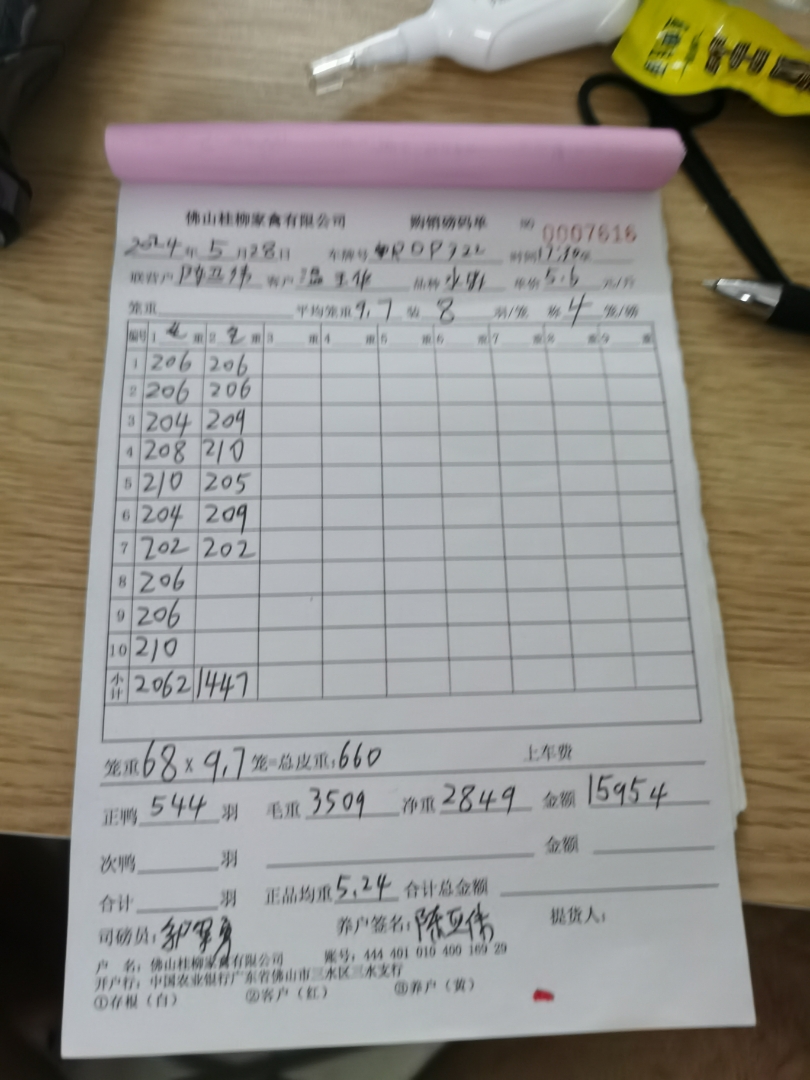 佛山桂柳家禽有限公司 购销磅码单 № 0007616
2024年 5月28日 车牌号 时间
联营户 陈亚伟 客户 温 品种 水鸭 单价 5.6 元/斤
笼重 平均笼重 9.7 装 8 羽/笼 称 4 笼/磅
编号 1 毛 重 2 毛 重 3 重 4 重 5 重 6 重 7 重 8 重 9 重
1 206 206
2 206 206
3 204 209
4 208 210
5 210 205
6 204 209
7 202 202
8 206
9 206
10 210
小计 2062 1447
笼重 68 × 9.7 笼=总皮重: 660 上车费
正鸭 544 羽 毛重 3509 净重 2849 金额 15954
次鸭 羽 金额
合计 羽 正品均重 5.24 合计总金额
司磅员: 养户签名: 陈亚伟 提货人:
户 名: 佛山桂柳家禽有限公司 账号: 444 401 010 400 169 29
开户行: 中国农业银行广东省佛山市三水区三水支行
①存根(白) ②客户(红) ③养户(黄)